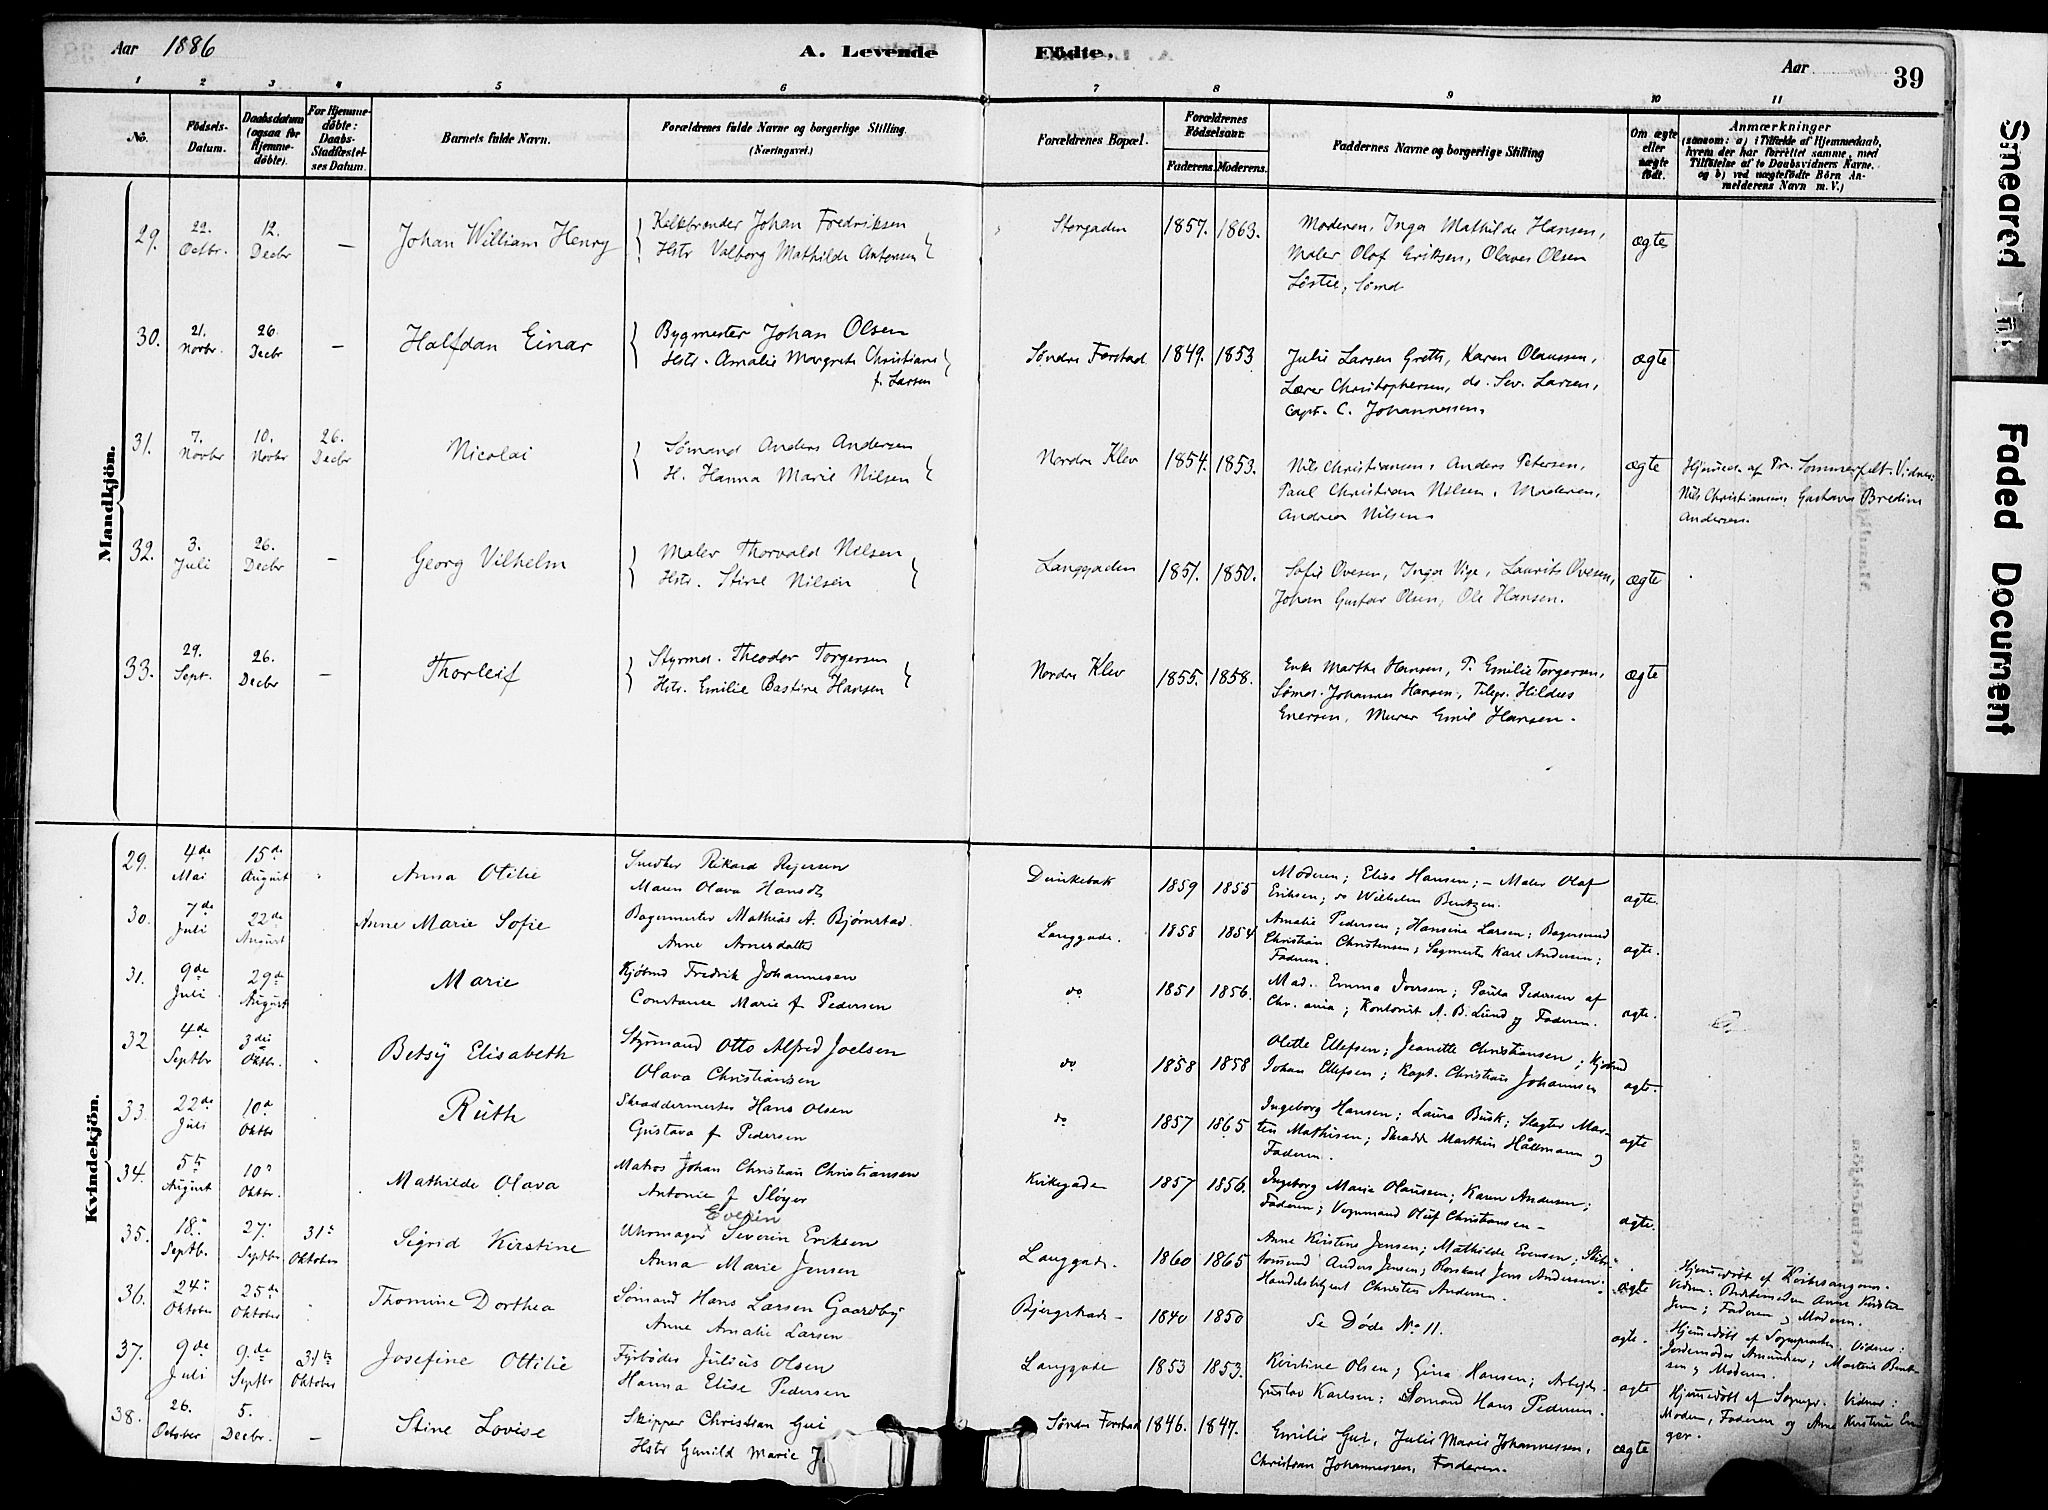 Aar 1886
A. Levende
Födte.
Aar
39
1 2 3 4 5 6 7 8 9 10 11
No.
Födsels-Datum.
Daabsdatum (ogsaa for Hjemmedöbte).
For Hjemmedöbte: Daabs-Stadfæstelses Datum.
Barnets fulde Navn.
Forældrenes fulde Navne og borgerlige Stilling. (Næringsvei.)
Forældrenes Bopæl.
Forældrenes Födselsaar.
Faderens. Moderens.
Faddernes Navne og borgerlige Stilling
Om ægte eller uægte födt.
Anmærkninger
(saasom: a) i Tilfælde af Hjemmedaab, hvem der har forrettet samme, med Tilföielse af to Daabsvidners Navne. og b) ved uægtefödte Börn Anmelderens Navn m. V.)
Mandkjön.
29. 22. Octbr. 12. Decbr — Johan William Henry
Kalkbrænder Johan Fredriksen
Hstr Valborg Mathilde Antonsen
Storgaden 1857. 1863.
Moderen, Inga Mathilde Hansen,
Maler Olaf Eriksen, Olaves Olsen
Sømd
ægte
30. 21. Novbr. 26. Decbr — Halfdan Einar
Bygmester Johan Olsen
Hstr. Amalie Margrete Christiane
f. Larsen
Søndre Forstad 1849. 1853
Julie Larsen Grette, Karen Olaussen,
Lærer Christophersen, do. Sev. Larsen,
Capt. C. Johannessen.
ægte
31. 7. Novbr 10. Novbr 26. Decbr Nicolai
Sømand Anders Andersen
H. Hanna Marie Nilsen
Nordre Klev 1854. 1853.
Nils Christiansen, Anders Petersen,
Paul Christian Nilsen, Moderen,
Andrea Nilsen.
ægte
Hjemmed. af Pr. Sommerfelt. Vidner:
Nils Christiansen, Gustava Bredine
Andersen.
32. 3. Juli 26. Decbr — Georg Vilhelm
Maler Thorvald Nilsen
Hstr. Stine Nilsen
Langgaden 1851. 1850.
Sofie Ovesen, Inga Vige, Laurits Ovesen,
Johan Gustav Olsen, Ole Hansen.
ægte
33. 29. Sept. 26. Decbr — Thorleif
Styrmd. Theodor Torgersen
Hstr. Emilie Bastine Hansen
Nordre Klev 1855. 1858.
Enke Marthe Hansen, P. Emilie Torgersen,
Sømd. Johannes Hansen, Telegr. Hildus
Enersen, Murer Emil Hansen.
ægte
Kvindekjön.
29. 4de Mai 15de August Anna Otilie
Snedker Rikard Rejersen
Maren Olava Hansdt
Dunkebak 1859 1855
Moderen; Elise Hansen; – Maler Olaf
Eriksen; do Wilhelm Bentzen.
ægte.
30. 7de Juli 22de August Anne Marie Sofie
Bagermester Mathias A. Bjørnstad.
Anne Arnesdatte
Langgade. 1858 1854
Amalie Pedersen; Hansine Larsen; Bagersvend
Christian Christensen; Sagmester Karl Andersen;
Faderen.
ægte.
31. 9de Juli 29de August Marie
Kjøbmd Fredrik Johannesen
Constance Marie f Pedersen
do 1851 1856.
Mad. Emma Iversen; Paula Pedersen af
Chr.ania; Kontorist A. B. Lund og Faderen.
ægte.
32 4de Septbr 3die Oktbr. Betsy Elisabeth
Styrmand Otto Alfred Joelsen
Olava Christiansen
do 1858 1858
Olette Ellefsen; Jeanette Christiansen; Kjøbmd
Johan Ellefsen; Kapt. Christian Johannsen
ægte.
33. 22de Juli 10d Oktbr Ruth
Skræddermester Hans Olsen
Gustava f Pedersen
do 1857 1865
Ingeborg Hansen; Laura Busk; Slagter Mar-
tin Mathisen; Skrædd Marthin Hållmann og
Faderen.
ægte
34. 5te August 10de Oktbr. Mathilde Olava
Matros Johan Christian Christiansen
Antonie f Sløger
Kirkegade 1857 1856.
Ingeborg Marie Olausen; Karen Andersen;
Faderen; Vognmand Oluf Christiansen –
ægte.
35. 18. Septbr. 27. Septbr 31te Oktober Sigrid Kirstine
Evensen
Uhrmager Severin Eriksen
Anna Marie Jensen
Langgade. 1860 1865
Anne Kirstine Jensen; Mathilde Evensen; Skibs-
tømmd Anders Jensen; Rorskarl Jens Andersen.
Handelsbetjent Christen Andersen.
ægte
Hjemmedøbt af Kirkesangeren.
Vidner: Bedstemoder Anne Kirstin
Jensen; Faderen og Moderen.
36. 24de Oktober 25de Oktober Thomine Dorthea
Sømand Hans Larsen Gaardby
Anne Amalie Larsen
Bjergstrade – 1840 1850
Se Døde No 11.
ægte.
Hjemmedøbt af Sognepræsten. Vidner:
Jordemoder Amundsen; Martine Bent-
sen og Moderen.
37. 9de Juli 9.de Septbr 31te Oktober Josefine Ottilie
Fyrbøder Julius Olsen
Hanna Elise Pedersen
Langgade 1853 1853.
Kirstine Olsen; Gina Hansen; Arbejd.
Gustav Karlsen; Sømand Hans Pedersen.
ægte
Hjemmedøbt af Sognepr. Vidner:
Moder, Faderen og Anne Kristine En-
ger.
38. 26. October 5. Decbr. — Stine Lovise
Skipper Christian Gui
Hstr Gunild Marie J.
Søndre Forstad 1846. 1847.
Emilie Gui, Julie Marie Johannessen,
Christian Johannessen, Faderen.
ægte
Smeared Ink
Faded Document